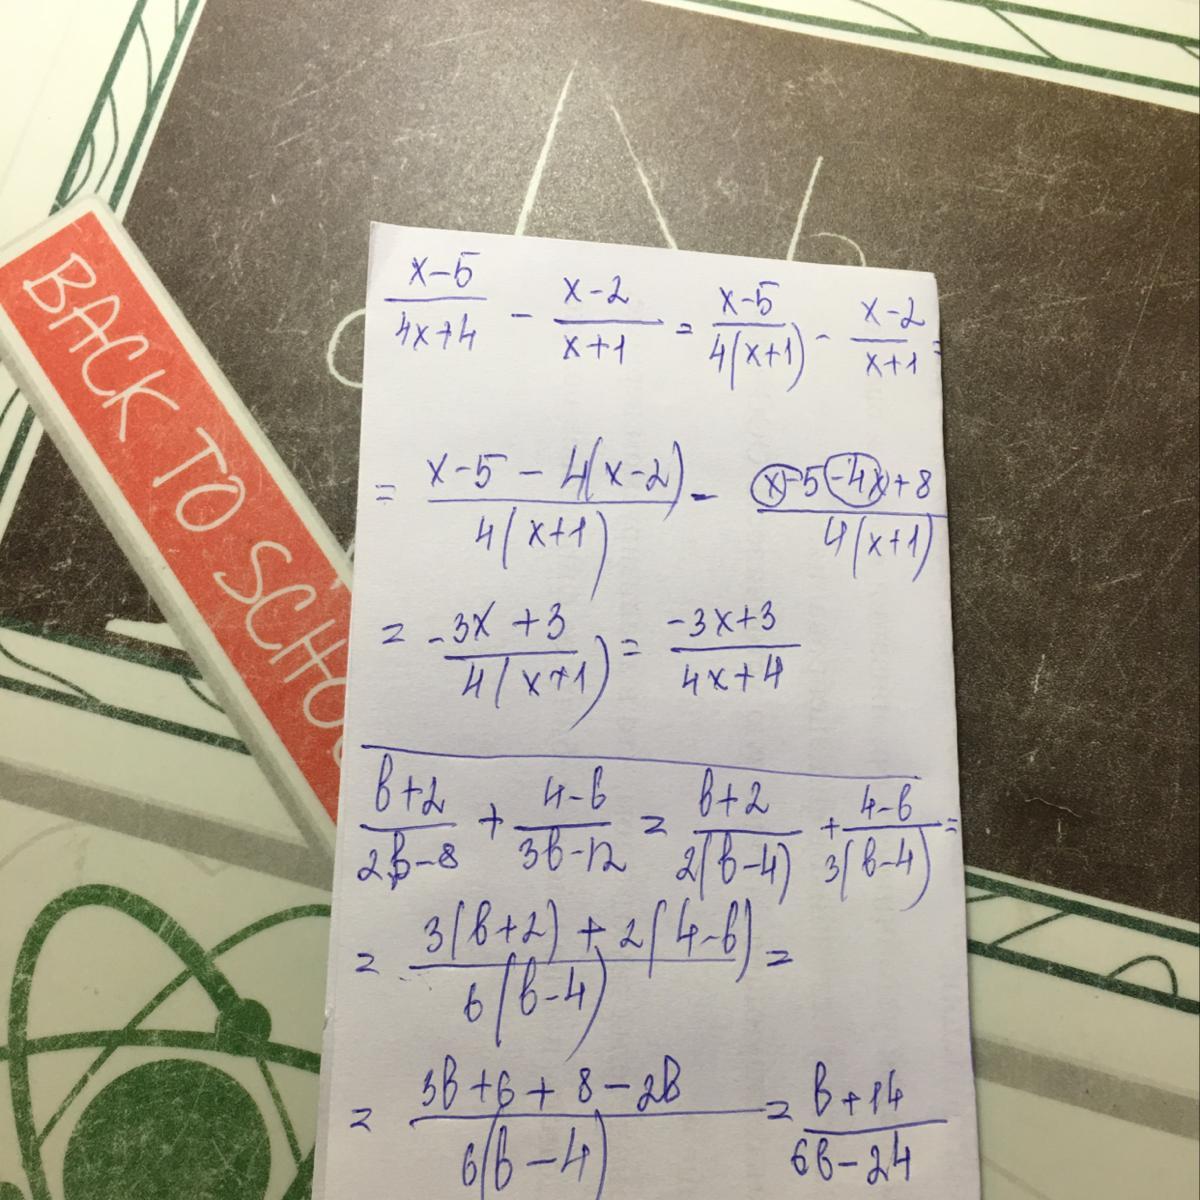 BACK TO SCHO
x-5/4x+4 - x-2/x+1 = x-5/4(x+1) - x-2/x+1 =
= x-5-4(x-2)/4(x+1) - x-5-4x+8/4(x+1)
= -3x+3/4(x+1) = -3x+3/4x+4
b+2/2b-8 + 4-b/3b-12 = b+2/2(b-4) + 4-b/3(b-4) =
= 3(b+2)+2(4-b)/6(b-4) =
= 3b+6+8-2b/6(b-4) = b+14/6b-24